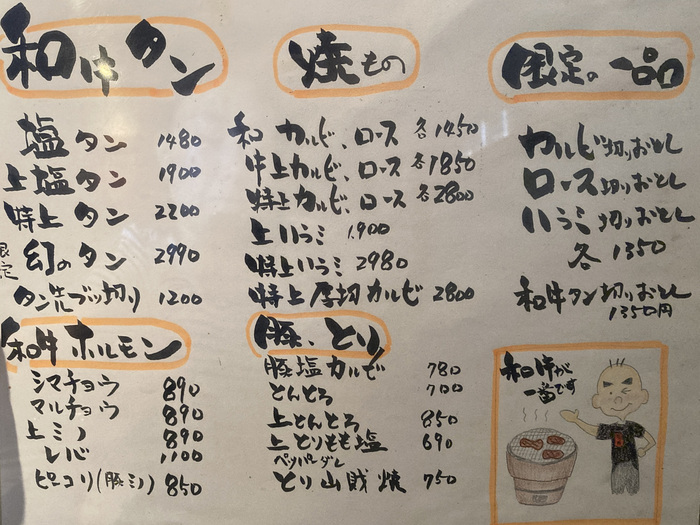 和牛タン
塩タン 1480
上塩タン 1900
特上タン 2200
限定 幻のタン 2990
タン先ブツ切り 1200
和牛ホルモン
シマチョウ 890
マルチョウ 890
上ミノ 890
レバ 1100
ピコリ(豚ミノ) 850
焼もの
和牛 カルビ、ロース 各1450
上カルビ、ロース 各1850
特上カルビ、ロース 各2800
上ハラミ 1,900
特上ハラミ 2980
特上厚切カルビ 2800
豚、とり
豚塩カルビ 780
とんとろ 700
上とんとろ 850
上とりもも塩 690
ペッパーダレ
とり山賊焼 750
限定の一品
カルビ切りおとし
ロース切りおとし
ハラミ切りおとし
各 1350
和牛タン切りおとし
1350円
和牛が
一番です